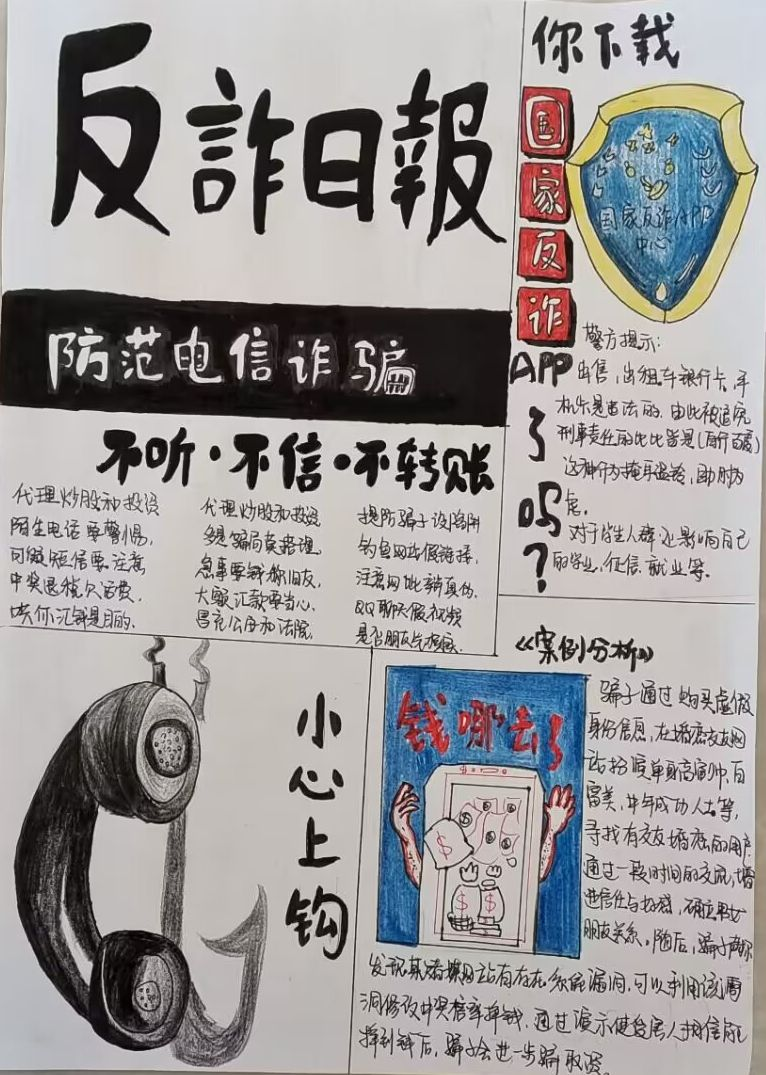 反詐日報
防范电信诈骗
不听·不信·不转账
代理炒股和投资
陌生电话要警惕,
可疑短信要注意
中奖退税欠话费,
哄你汇钱是目的.
代理炒股和投资
多是骗局莫搭理,
急事要钱称旧友,
大额汇款要当心.
冒充公安和法院.
提防骗子设陷阱
钓鱼网站假链接,
注意网址辨真伪,
QQ聊天假视频
是否朋友先
你下载
国家反诈
APP
了吗?
国家反诈APP
中心
警方提示:
出售,出租车银行卡、手
机卡是违法的.由此被追究
刑事责任的比比皆是(自行百度)
这种行为掩耳盗铃,助纣为
虐.
对于学生人群还影响自己
的学业,征信,就业等.
小心上钩
《案例分析》
钱哪去了
骗子通过购买虚假
身份信息,在婚恋交友网
站扮演单身高富帅,白
富美,中年成功人士等,
寻找有交友婚恋的用户.
通过一段时间的交流,增
进信任与好感,确立男女
朋友关系,随后,骗子声称
发现某博彩网站有存在系统漏洞,可以利用该漏
洞修改中奖倍率挣钱,通过演示使受害人相信能
挣到钱后,骗子会进一步骗取